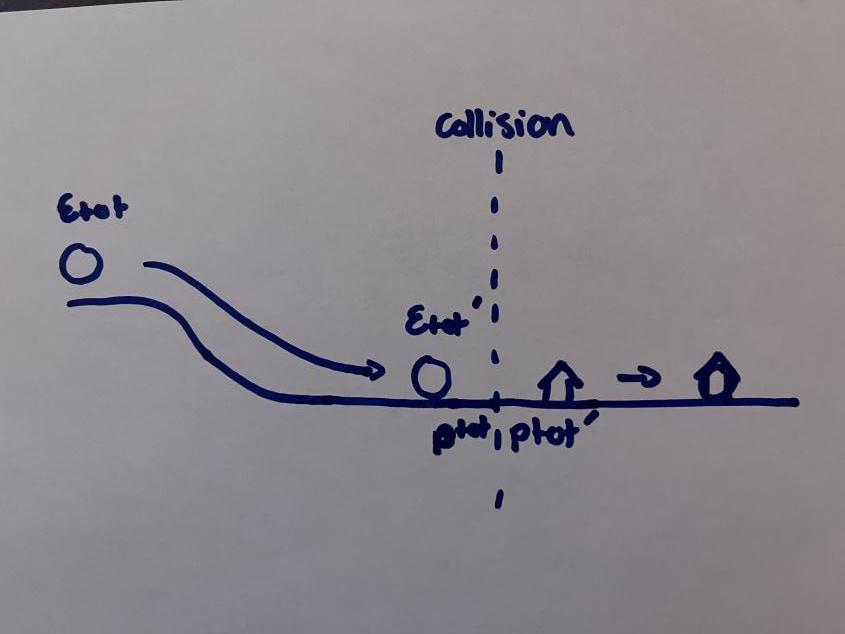 collision
Etot
Etot'
ptot ptot'